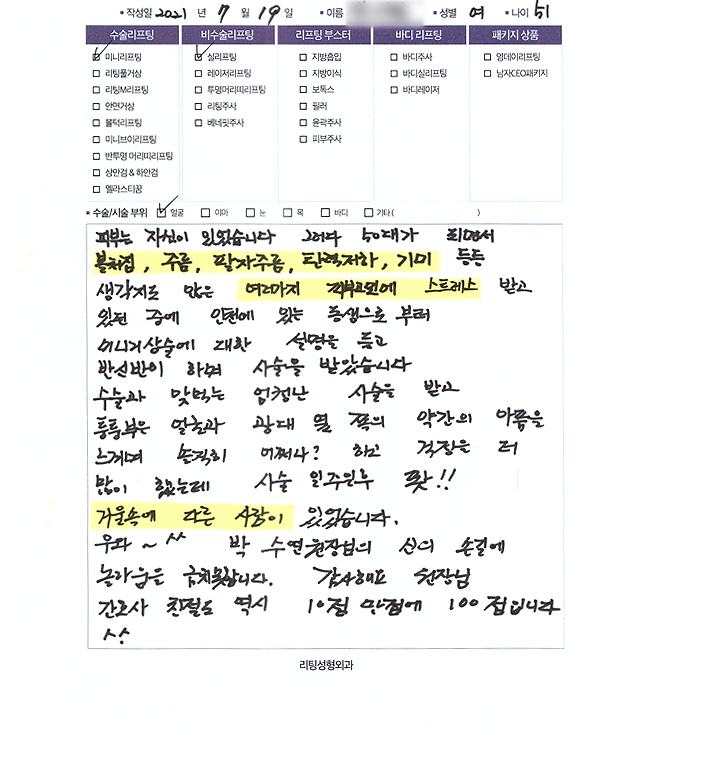 작성일 2021 년 7 월 19 일 이름 성별 여 나이 51
수술리프팅 비수술리프팅 리프팅 부스터 바디 리프팅 패키지 상품
미니리프팅 실리프팅 지방흡입 바디주사 영데이리프팅
리팅풀거상 레이저리프팅 지방이식 바디실리프팅 남자CEO패키지
리팅M리프팅 투명머리띠리프팅 보톡스 바디레이저
안면거상 리팅주사 필러
불턱리프팅 베네핏주사 윤곽주사
미니브이리프팅 피부주사
반투명 머리띠리프팅
상안검 & 하안검
엘라스티꿈
수술/시술 부위 얼굴 이마 눈 목 바디 기타 ( )
피부는 자신이 있었습니다 그러다 50대가 되면서
볼처짐, 주름, 팔자주름, 탄력저하, 기미 등등
생각지도 않은 여러가지 피부고민에 스트레스 받고
있던 중에 인천에 있는 동생으로 부터
미니거상술에 대한 설명을 듣고
반신반이 하며 시술을 받았습니다
수술과 맞먹는 엄청난 시술을 받고
퉁퉁부은 얼굴과 광대 옆 쪽의 약간의 아픔을
느끼며 솔직히 어쩌나? 하고 걱정을 더
많이 했는데 시술 일주일후 팟!!
거울속에 다른 사람이 있었습니다.
우와 ~ ^^ 박 수연원장님의 신의 손길에
놀라움을 금치못합니다. 감사해요 원장님
간호사 친절도 역시 10점 만점에 100점입니다
^^
리팅성형외과